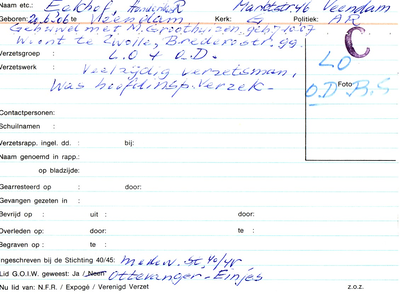 Naam etc.: Eekhof, Hendrik R Marktstr. 46 Veendam
Geboren: 20.6.'06 te Veendam Kerk: G Politiek: AR
Gehuwd met N. Groothuizen, geb. 10.07
Woont te Zwolle, Brederostr. 99.
Verzetsgroep : L.O + O.D.
Verzetswerk : Veelzijdig verzetsman,
Was hoofdinsp. Verzek.
C
LO
Foto
O.D. B.S
Contactpersonen:
Schuilnaam :
Verzetsrapp. ingel. dd. : bij:
Naam genoemd in rapp.:
op bladzijde:
Gearresteerd op : door:
Gevangen gezeten in :
Bevrijd op : uit : door:
Overleden op: door: te :
Begraven op : te :
Ingeschreven bij de Stichting 40/45: medew. St. 40/45
Lid G.O.I.W. geweest: Ja/Neen Ottevanger-Einjes
Nu lid van: N.F.R. / Expogé / Verenigd Verzet z.o.z.